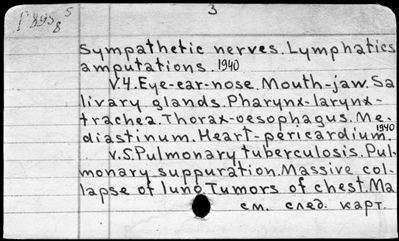 3
Sympathetic nerves. Lymphatics
amputations. 1940
V.4. Eye-ear-nose. Mouth-jaw. Sa
livary glands. Pharynx-larynx-
trachea. Thorax-oesophagus. Me.
diastinum. Heart-pericardium. 1940
V.5. Pulmonary tuberculosis. Pul-
monary suppuration. Massive col-
lapse of lung. Tumors of chest. Ma
см. след. карт.